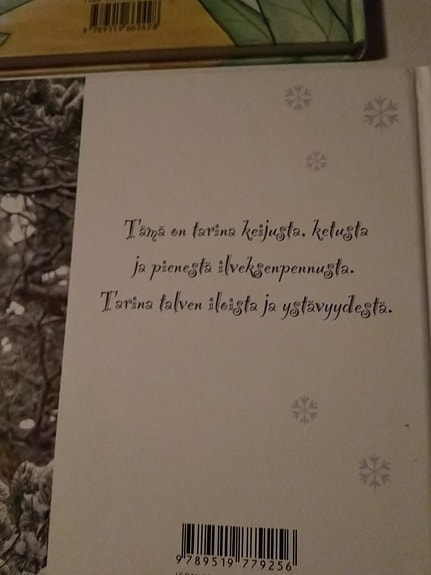 9789519662428
Tämä on tarina keijusta, ketusta
ja pienestä ilveksenpennusta.
Tarina talven iloista ja ystävyydestä.
9789519779256